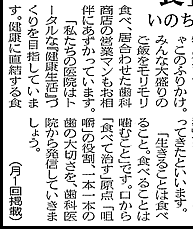 いのち
ゃこのふりかけ。
みんな大盛りの
ご飯をモリモリ
食べ、居合わせた歯科
商店の営業マンもお相
伴にあずかっています。
「私たちの医院はト
ータルな『健康生活』づ
くりを目指していま
す。健康に直結する食
ってきたといいます。
「生きることは食べ
ること。食べることは
噛むこと」です。口から
『食べて治す』原点『咀
嚼』の役割、一本一本の
歯の大切さを、歯科医
院から発信していきま
しょう。
（月1回掲載）